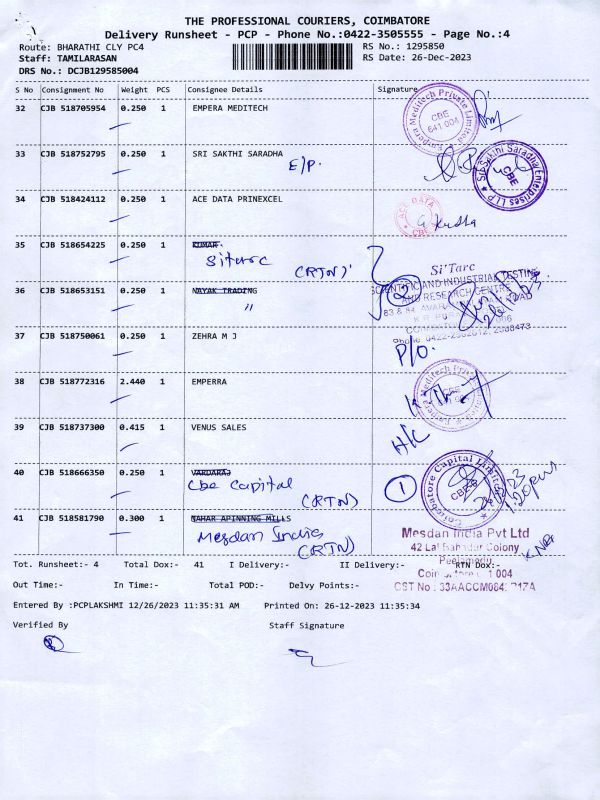 THE PROFESSIONAL COURIERS, COIMBATORE
Delivery Runsheet - PCP - Phone No.:0422-3505555 - Page No.:4
Route: BHARATHI CLY PC4 RS No.: 1295850
Staff: TAMILARASAN RS Date: 26-Dec-2023
DRS No.: DCJB129585004
S No Consignment No Weight PCS Consignee Details Signature
32 CJB 518705954 0.250 1 EMPERA MEDITECH
Empera Meditech Private Limited
CBE
641 004
33 CJB 518752795 0.250 1 SRI SAKTHI SARADHA
E/P.
Sri Sakthi Saradha Enterprises LLP
CBE
34 CJB 518424112 0.250 1 ACE DATA PRINEXCEL
ACE DATA
CBE
35 CJB 518654225 0.250 1 KUMAR
Sitarc (RTN)
Si'Tarc
SCIENTIFIC AND INDUSTRIAL TESTING
AND RESEARCH CENTRE
36 CJB 518653151 0.250 1 NAYAK TRADING
"
26/12/23
37 CJB 518750061 0.250 1 ZEHRA M J
P/O.
38 CJB 518772316 2.440 1 EMPERRA
Empera Meditech Private
CBE
39 CJB 518737300 0.415 1 VENUS SALES
H/C
40 CJB 518666350 0.250 1 VARDARAJ
Cbe Capital
(RTN)
1
Coimbatore Capital Limited
CBE
1:20pm
41 CJB 518581790 0.300 1 NAHAR APINNING MILLS
Mesdan India
(RTN)
Mesdan India Pvt Ltd
42 Lal Bahadur Colony
Peelamedu
Tot. Runsheet:- 4 Total Dox:- 41 I Delivery:- II Delivery:- RTN Dox:-
Out Time:- In Time:- Total POD:- Delvy Points:-
CST No : 33AACCM084
Entered By :PCPLAKSHMI 12/26/2023 11:35:31 AM Printed On: 26-12-2023 11:35:34
Verified By Staff Signature